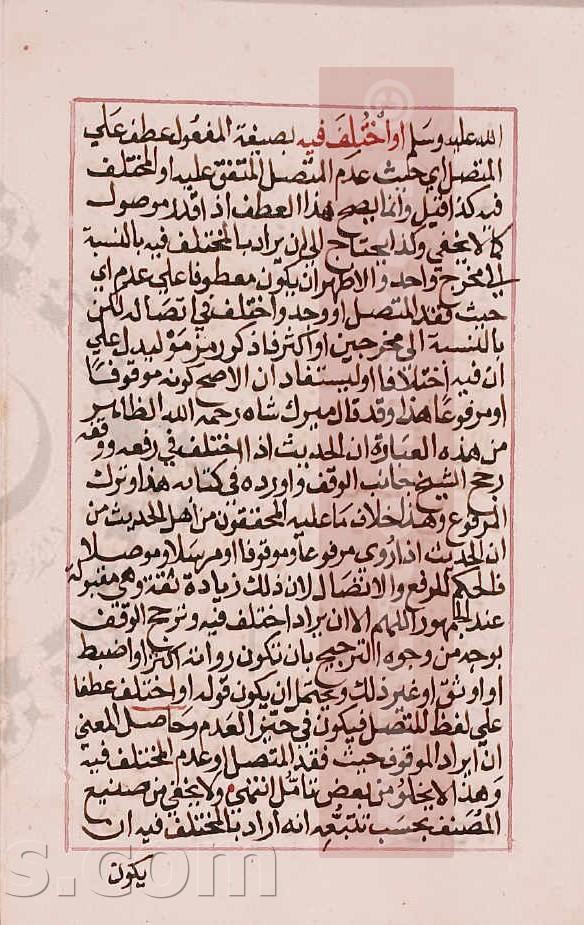 الله عليه وسلم او اختُلِفَ فيه بصيغة المفعول عطف على
المتصل اي حيث عدم المتّصل المتفق عليه او المختلف
فيه كذا قيل وانما يصح هذا العطف اذا قدر موصول
كما لا يخفي ولذا يحتاج الى ان يراد بالمختلف فيه بالنسبة
الى مخرج واحد والاظهر ان يكون معطوفا على عدم اي
حيث فقد المتصل او وجد واختلف في اتصاله لكن
بالنسبة الى مخرجين او اكثر فاذكر رمز مَوْ ليدل على
ان فيه اختلافا او ليستفاد ان الاصح كونه موقوفا
او مرفوعا هذا وقد قال ميرك شاه رحمه الله الظاهر
من هذه العبارة ان الحديث اذا اختلف في رفعه ووقفه
رجح الشيخ بجانب الوقف واورده في كتابه هذا وترك
المرفوع وهذا خلاف ما عليه المحققون من اهل الحديث من
ان الحديث اذا روي مرفوعا وموقوفا او مرسلا وموصلا
فالحكم للرفع والاتصال لان ذلك زيادة ثقة وهي مقبولة
عند الجمهور اللهم الا ان يراد اختلف فيه وترجح الوقف
بوجه من وجوه الترجيح بان تكون رواته اكثر او اضبط
او اوثق او غير ذلك ويحتمل ان يكون قوله او اختلف عطفا
على لفظ المتصل فيكون في حيّز العدم وحاصل المعنى
انّ ايراد الموقوف حيث فقد المتصل وعدم المختلف فيه
وهذا لا يخلو من بعض تامّل انتهى ولا يخفي من صنيع
المصَنف بحسب تتبّعه انه اراد بالمختلف فيه ان
يكون
s.com